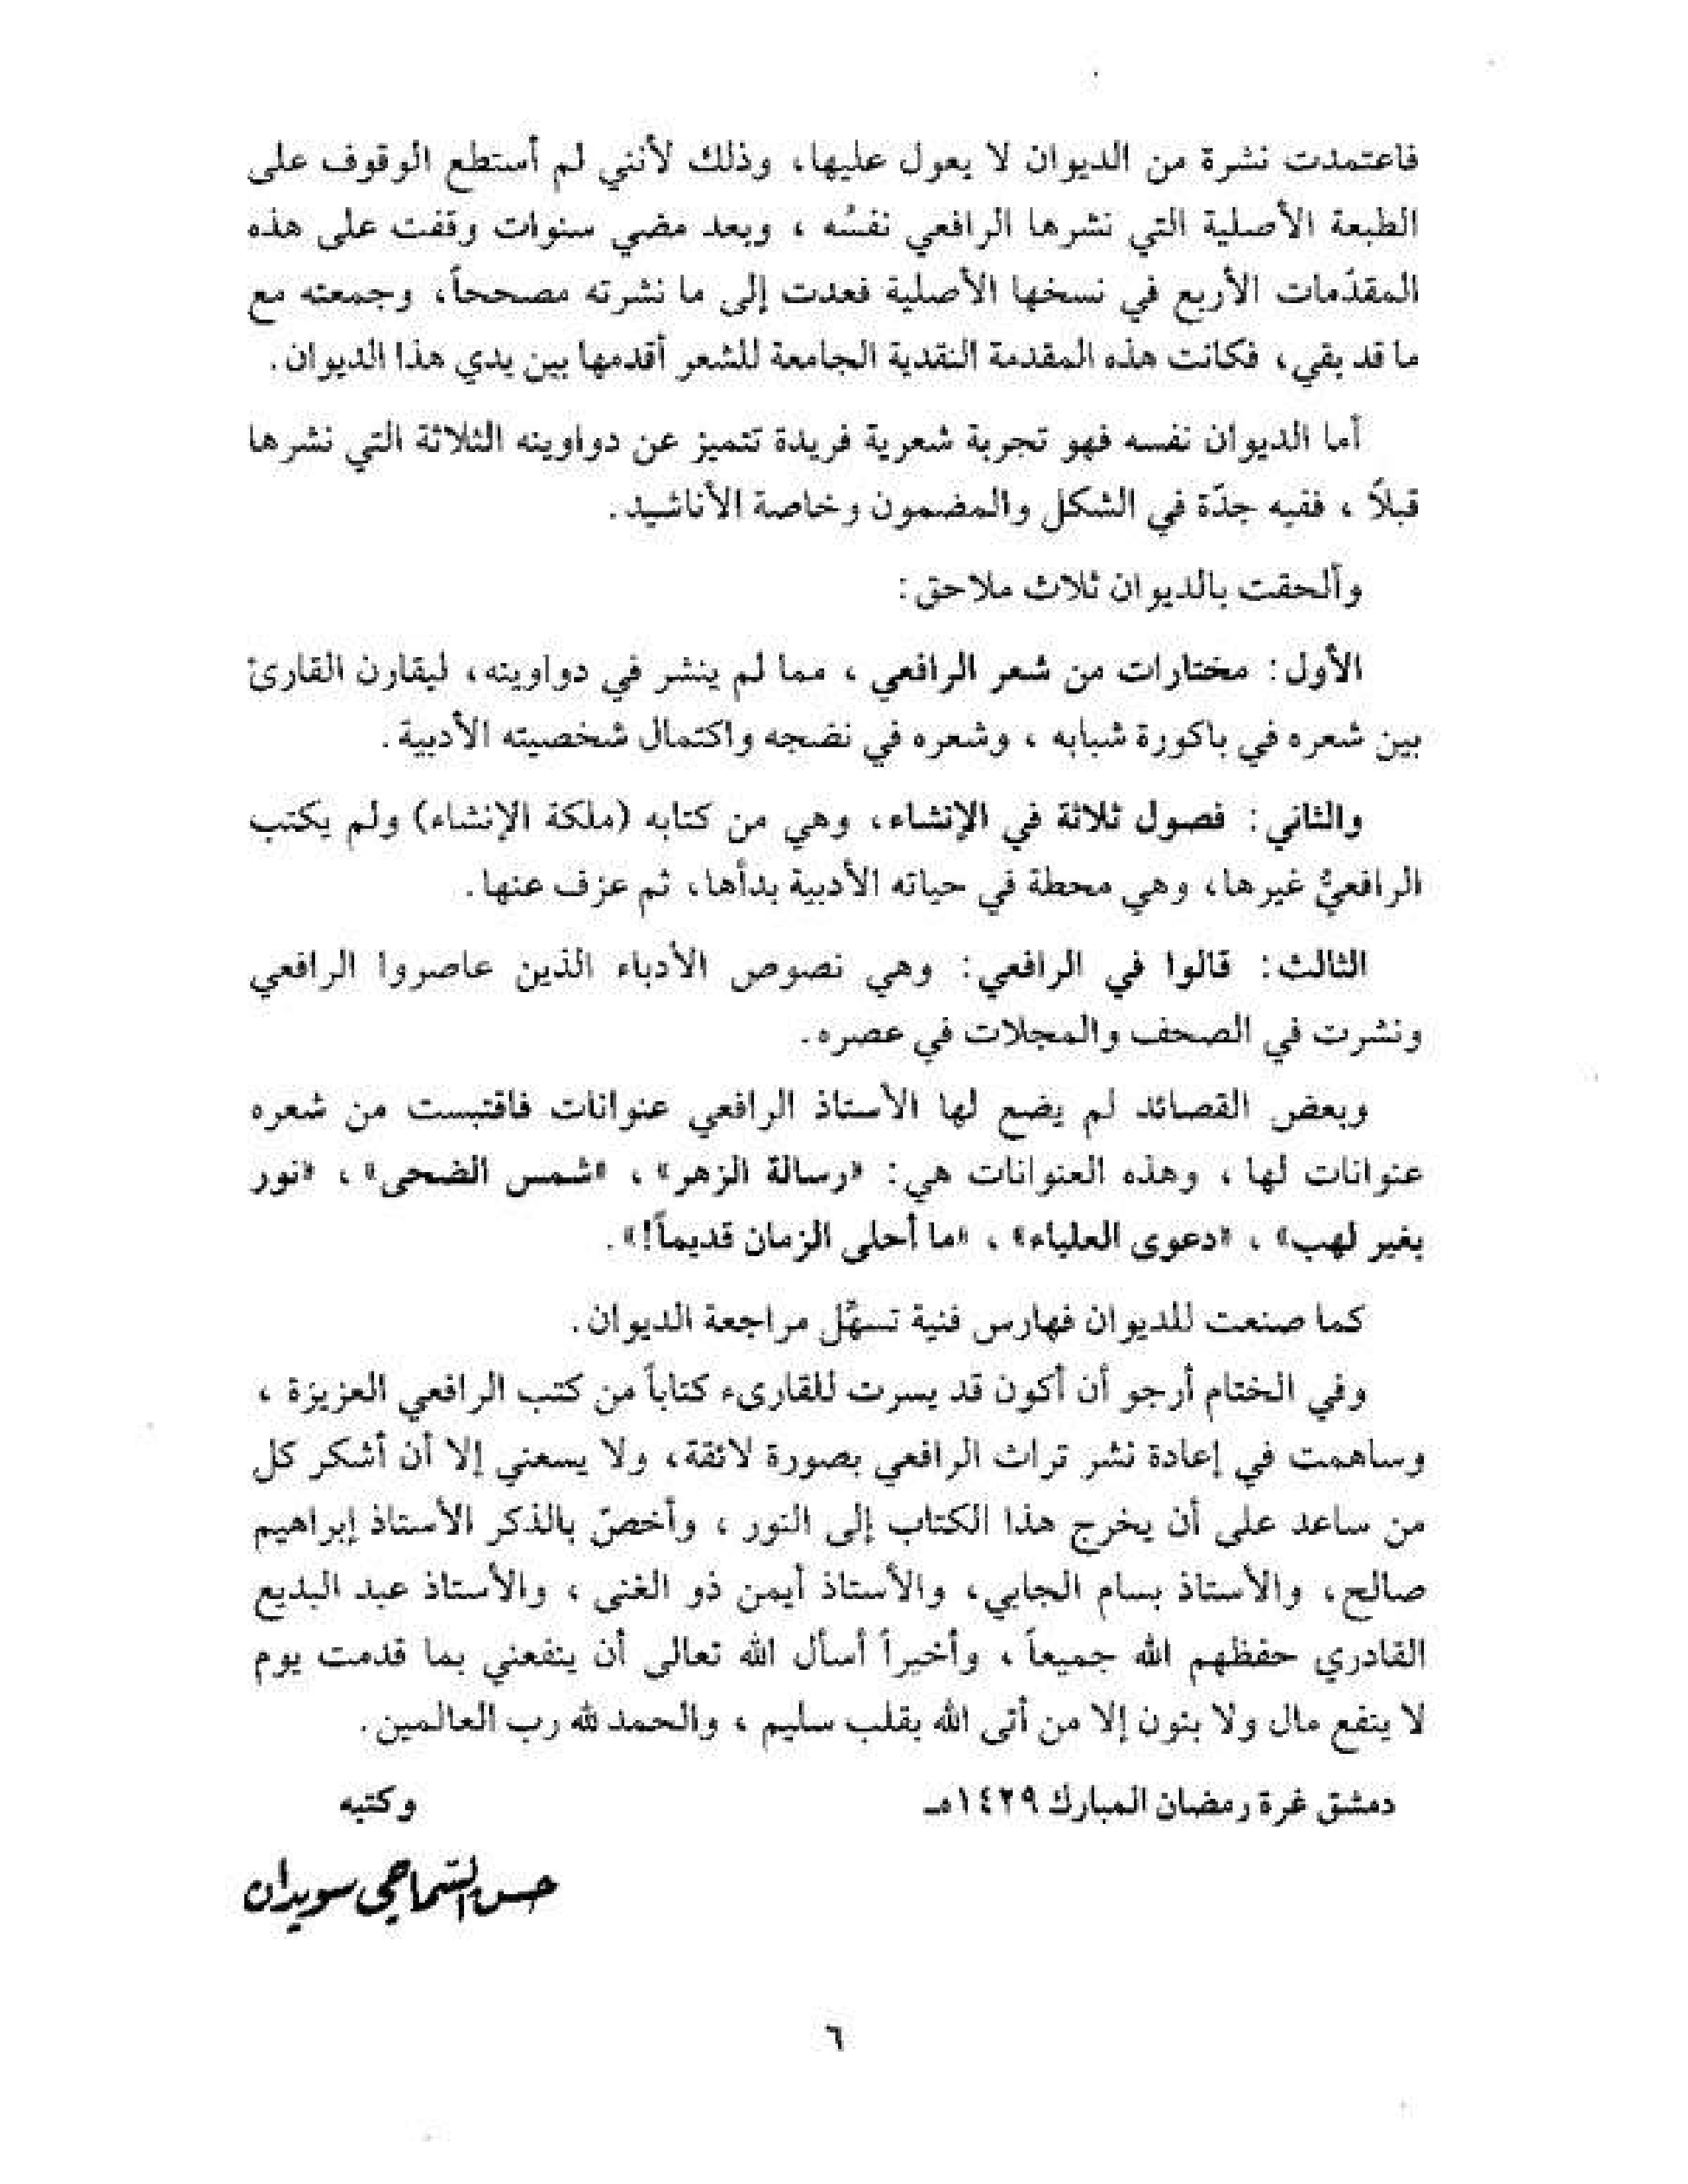 فاعتمدت نشرة من الديوان لا يعول عليها، وذلك لأنني لم أستطع الوقوف على
الطبعة الأصلية التي نشرها الرافعي نفسُه ، وبعد مضي سنوات وقفت على هذه
المقدّمات الأربع في نسخها الأصلية فعدت إلى ما نشرته مصححاً، وجمعته مع
ما قد بقي، فكانت هذه المقدمة النقدية الجامعة للشعر أقدمها بين يدي هذا الديوان.
أما الديوان نفسه فهو تجربة شعرية فريدة تتميز عن دواوينه الثلاثة التي نشرها
قبلاً ، ففيه جدّة في الشكل والمضمون وخاصة الأناشيد.
وألحقت بالديوان ثلاث ملاحق:
الأول: مختارات من شعر الرافعي ، مما لم ينشر في دواوينه، ليقارن القارئ
بين شعره في باكورة شبابه ، وشعره في نضجه واكتمال شخصيته الأدبية.
والثاني: فصول ثلاثة في الإنشاء، وهي من كتابه (ملكة الإنشاء) ولم يكتب
الرافعيُّ غيرها، وهي محطة في حياته الأدبية بدأها، ثم عزف عنها.
الثالث: قالوا في الرافعي: وهي نصوص الأدباء الذين عاصروا الرافعي
ونشرت في الصحف والمجلات في عصره.
وبعض القصائد لم يضع لها الأستاذ الرافعي عنوانات فاقتبست من شعره
عنوانات لها ، وهذه العنوانات هي: «رسالة الزهر» ، «شمس الضحى» ، «نور
بغير لهب» ، «دعوى العلياء» ، «ما أحلى الزمان قديماً!» .
كما صنعت للديوان فهارس فنية تسهِّل مراجعة الديوان.
وفي الختام أرجو أن أكون قد يسرت للقارىء كتاباً من كتب الرافعي العزيزة ،
وساهمت في إعادة نشر تراث الرافعي بصورة لائقة، ولا يسعني إلا أن أشكر كل
من ساعد على أن يخرج هذا الكتاب إلى النور ، وأخصّ بالذكر الأستاذ إبراهيم
صالح، والأستاذ بسام الجابي، والأستاذ أيمن ذو الغنى ، والأستاذ عبد البديع
القادري حفظهم الله جميعاً ، وأخيراً أسأل الله تعالى أن ينفعني بما قدمت يوم
لا ينفع مال ولا بنون إلا من أتى الله بقلب سليم ، والحمد لله رب العالمين.
دمشق غرة رمضان المبارك ١٤٢٩هـ وكتبه
حسن السماحي سويدان
٦